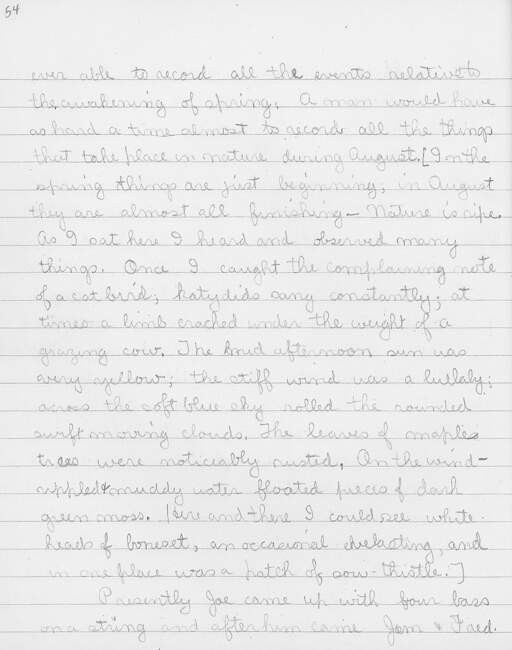 54
ever able to record all the events relative to
the awakening of spring. A man would have
as hard a time almost to record all the things
that take place in nature during August. [In the
spring things are just beginning; in August
they are almost all finishing – Nature is ripe.
As I sat here I heard and observed many
things. Once I caught the complaining note
of a cat bird; katydids sang constantly; at
times a limb cracked under the weight of a
grazing cow. The mid afternoon sun was
very yellow; the stiff wind was a lullaby;
across the soft blue sky rolled the rounded
swift moving clouds. The leaves of maple
trees were noticeably rusted. On the wind-
rippled & muddy water floated pieces of dark
green moss. Here and there I could see white
heads of boneset, an occasional everlasting, and
in one place was a patch of sow-thistle.]
Presently Joe came up with four bass
on a string and after him came Jem & Fred.